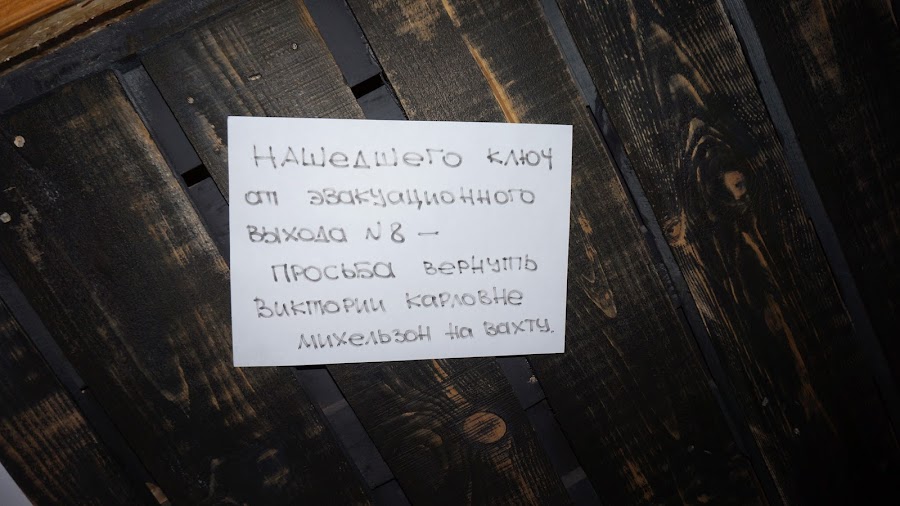 Нашедшего ключ
от эвакуационного
выхода N8 —
просьба вернуть
Виктории Карловне
Михельзон на вахту.